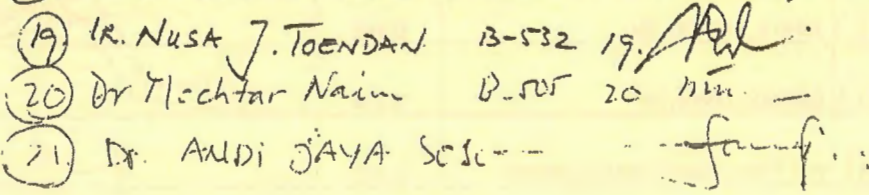 19 IR. NUSA J. TOENDAN B-532 19.
20 Dr Mochtar Naim B-505 20
21. Dr. ANDI JAYA